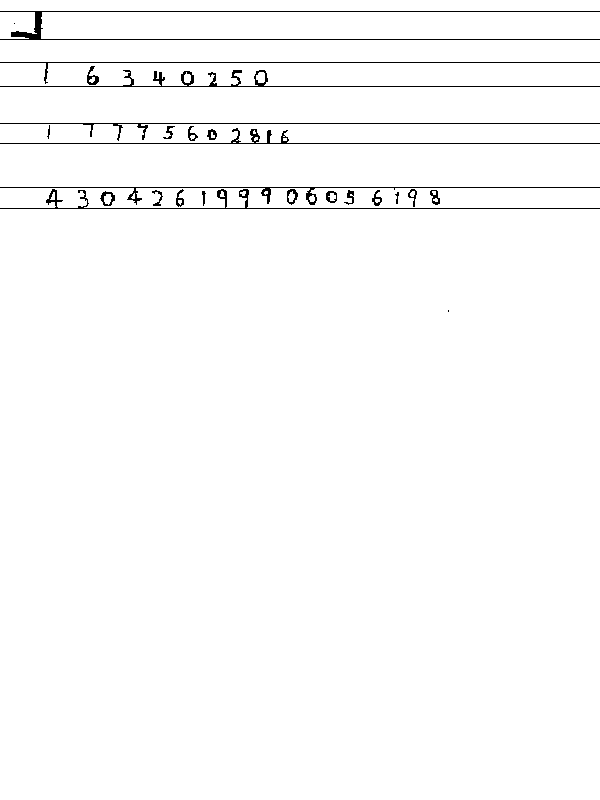 1 6 3 4 0 2 5 0
1 7 7 7 5 6 0 2 8 1 6
4 3 0 4 2 6 1 9 9 9 0 6 0 5 6 1 9 8